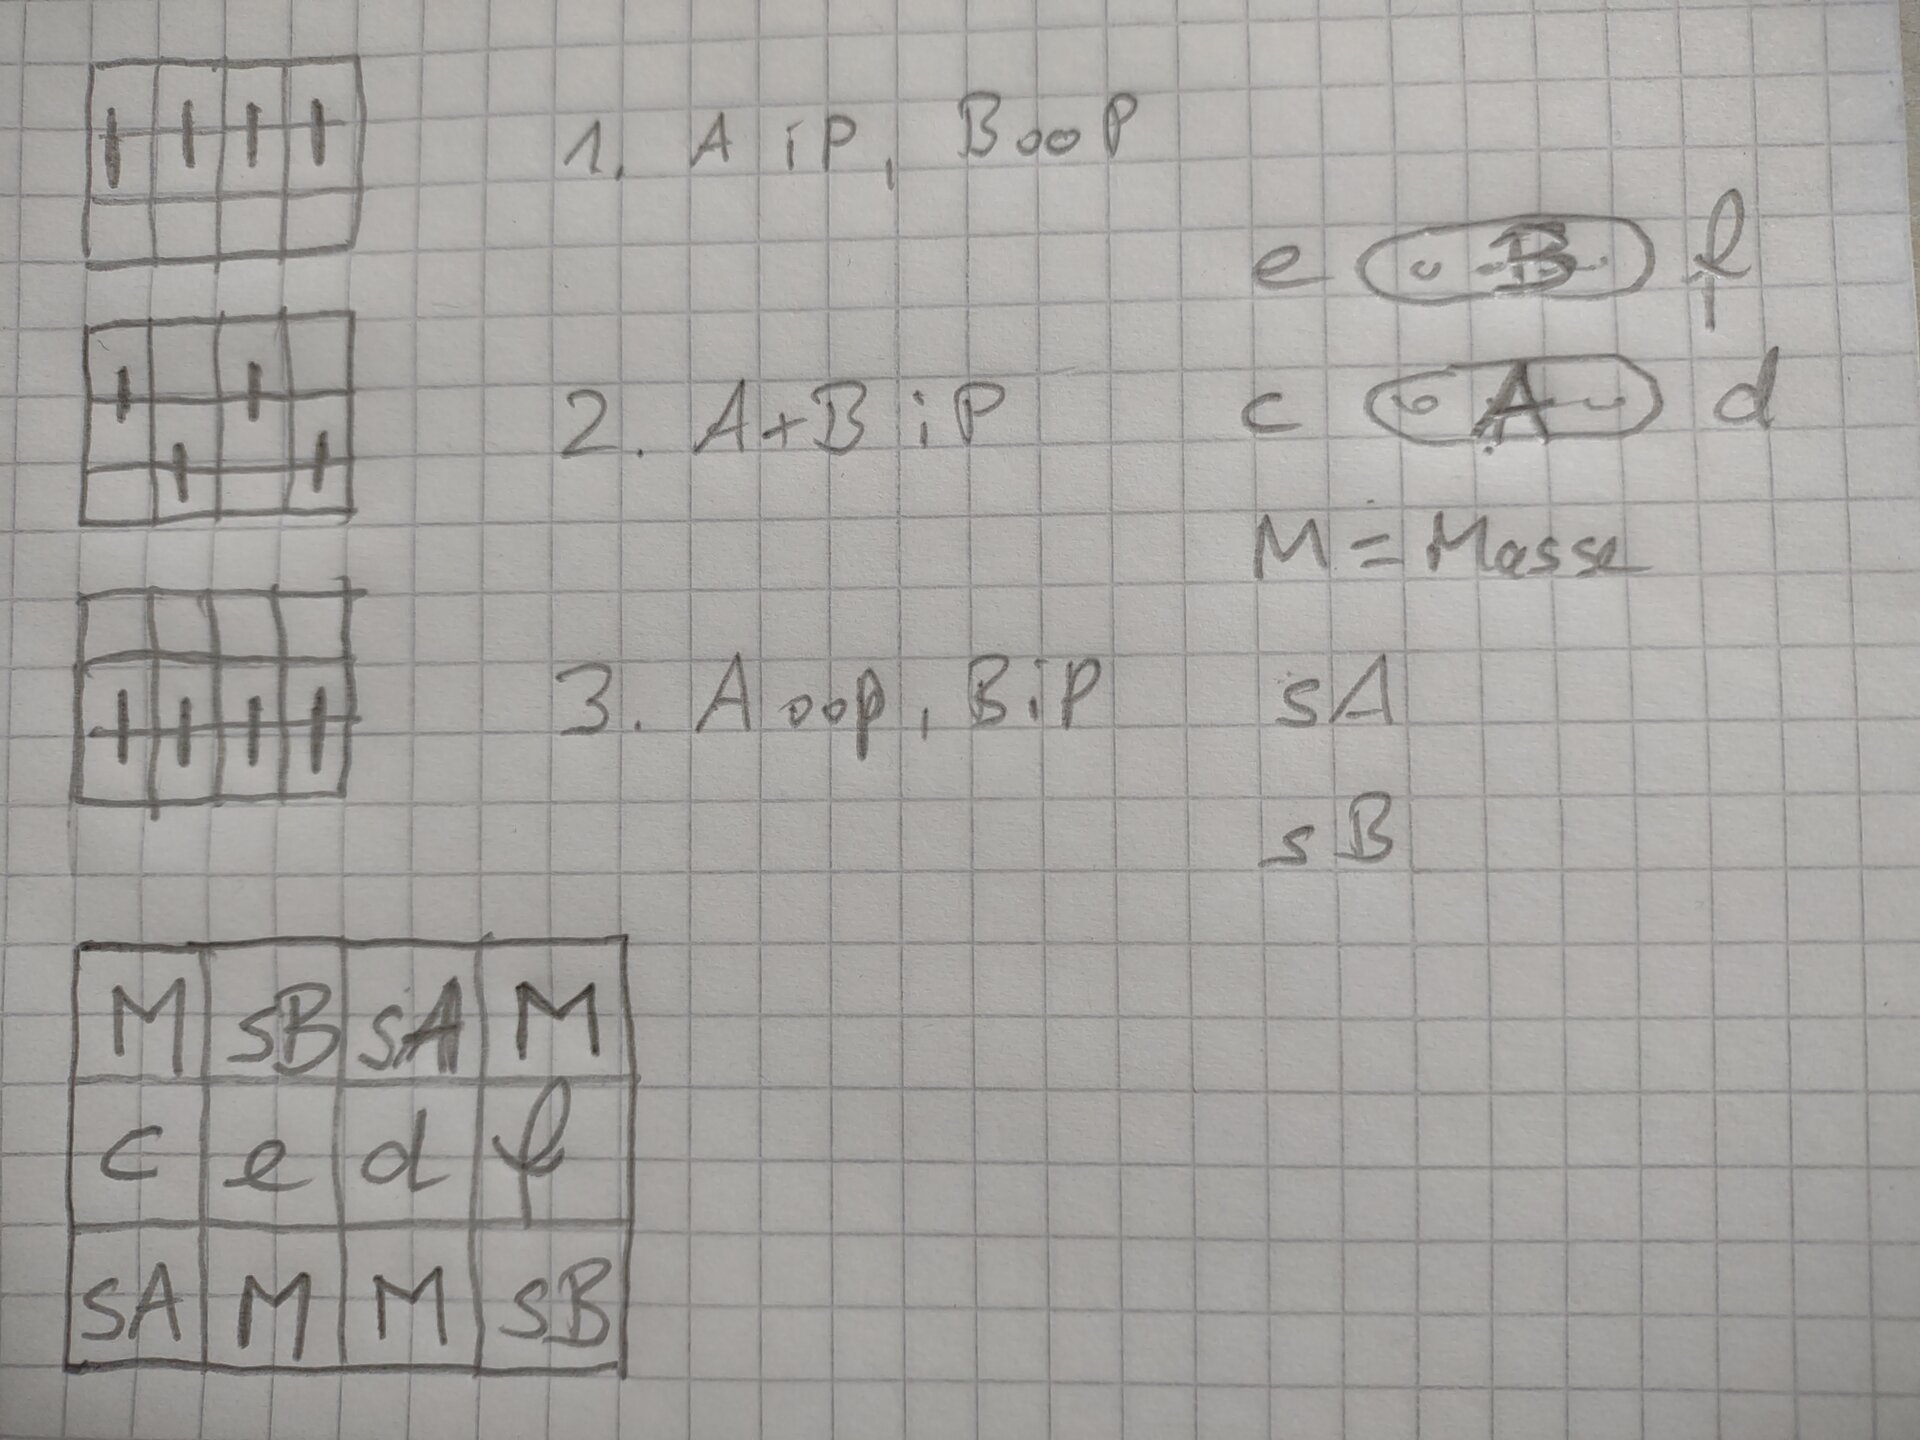 1. A iP, B ooP
e B f
2. A+B iP
c A d
M = Masse
3. A oop, B iP
sA
sB
M sB sA M
c e d f
sA M M sB